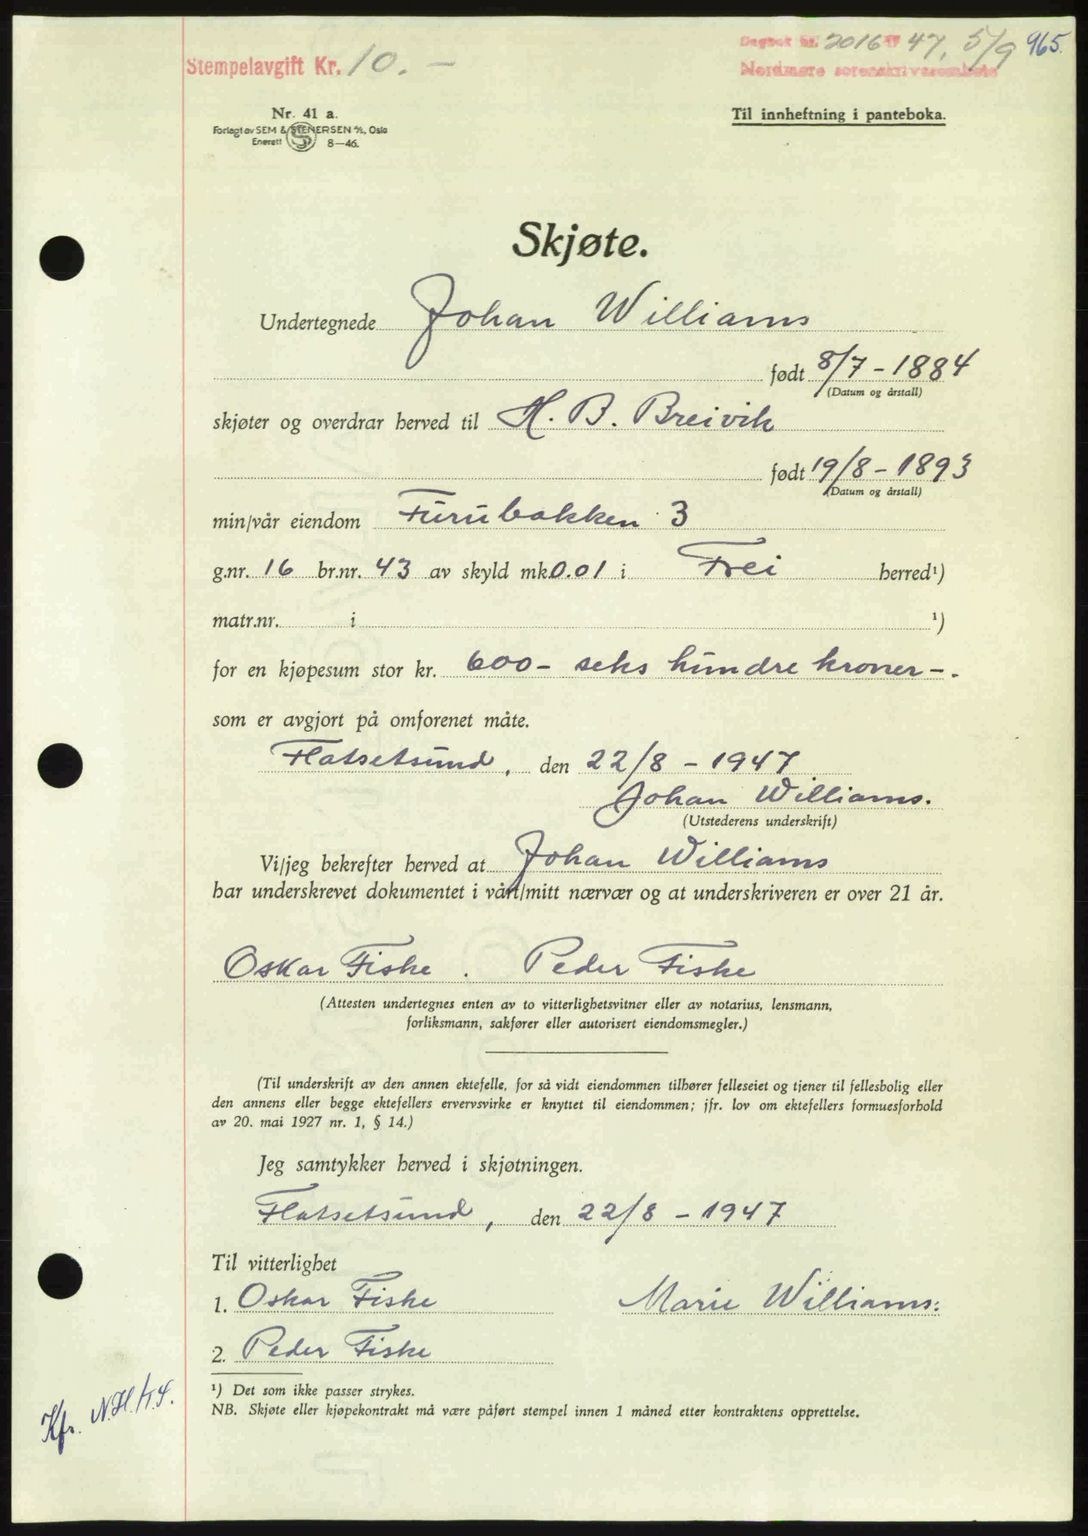 Stempelavgift Kr. 10.-
Dagbok nr. 2016 47, 5/9 965.
Nordmøre sorenskriverembete
Nr. 41 a.
Forlagt av SEM & STENERSEN A/S, Oslo
Enerett 8-46.
Til innheftning i panteboka.
Skjøte.
Undertegnede Johan Williams
født 8/7 - 1884
(Datum og årstall)
skjøter og overdrar herved til H. B. Breivik
født 19/8 - 1893
(Datum og årstall)
min/vår eiendom Furubakken 3
g.nr. 16 br.nr. 43 av skyld mk 0.01 i Frei herred¹)
matr.nr. i ¹)
for en kjøpesum stor kr. 600 - seks hundre kroner - .
som er avgjort på omforenet måte.
Flatsetsund, den 22/8 - 1947
Johan Williams.
(Utstederens underskrift)
Vi/jeg bekrefter herved at Johan Williams
har underskrevet dokumentet i vårt/mitt nærvær og at underskriveren er over 21 år.
Oskar Fiske . Peder Fiske
(Attesten undertegnes enten av to vitterlighetsvitner eller av notarius, lensmann,
forliksmann, sakfører eller autorisert eiendomsmegler.)
(Til underskrift av den annen ektefelle, for så vidt eiendommen tilhører felleseiet og tjener til fellesbolig eller
den annens eller begge ektefellers ervervsvirke er knyttet til eiendommen; jfr. lov om ektefellers formuesforhold
av 20. mai 1927 nr. 1, § 14.)
Jeg samtykker herved i skjøtningen.
Flatsetsund, den 22/8 - 1947
Til vitterlighet
1. Oskar Fiske Marie Williams.
2. Peder Fiske
¹) Det som ikke passer strykes.
NB. Skjøte eller kjøpekontrakt må være påført stempel innen 1 måned etter kontraktens opprettelse.
Kfr.